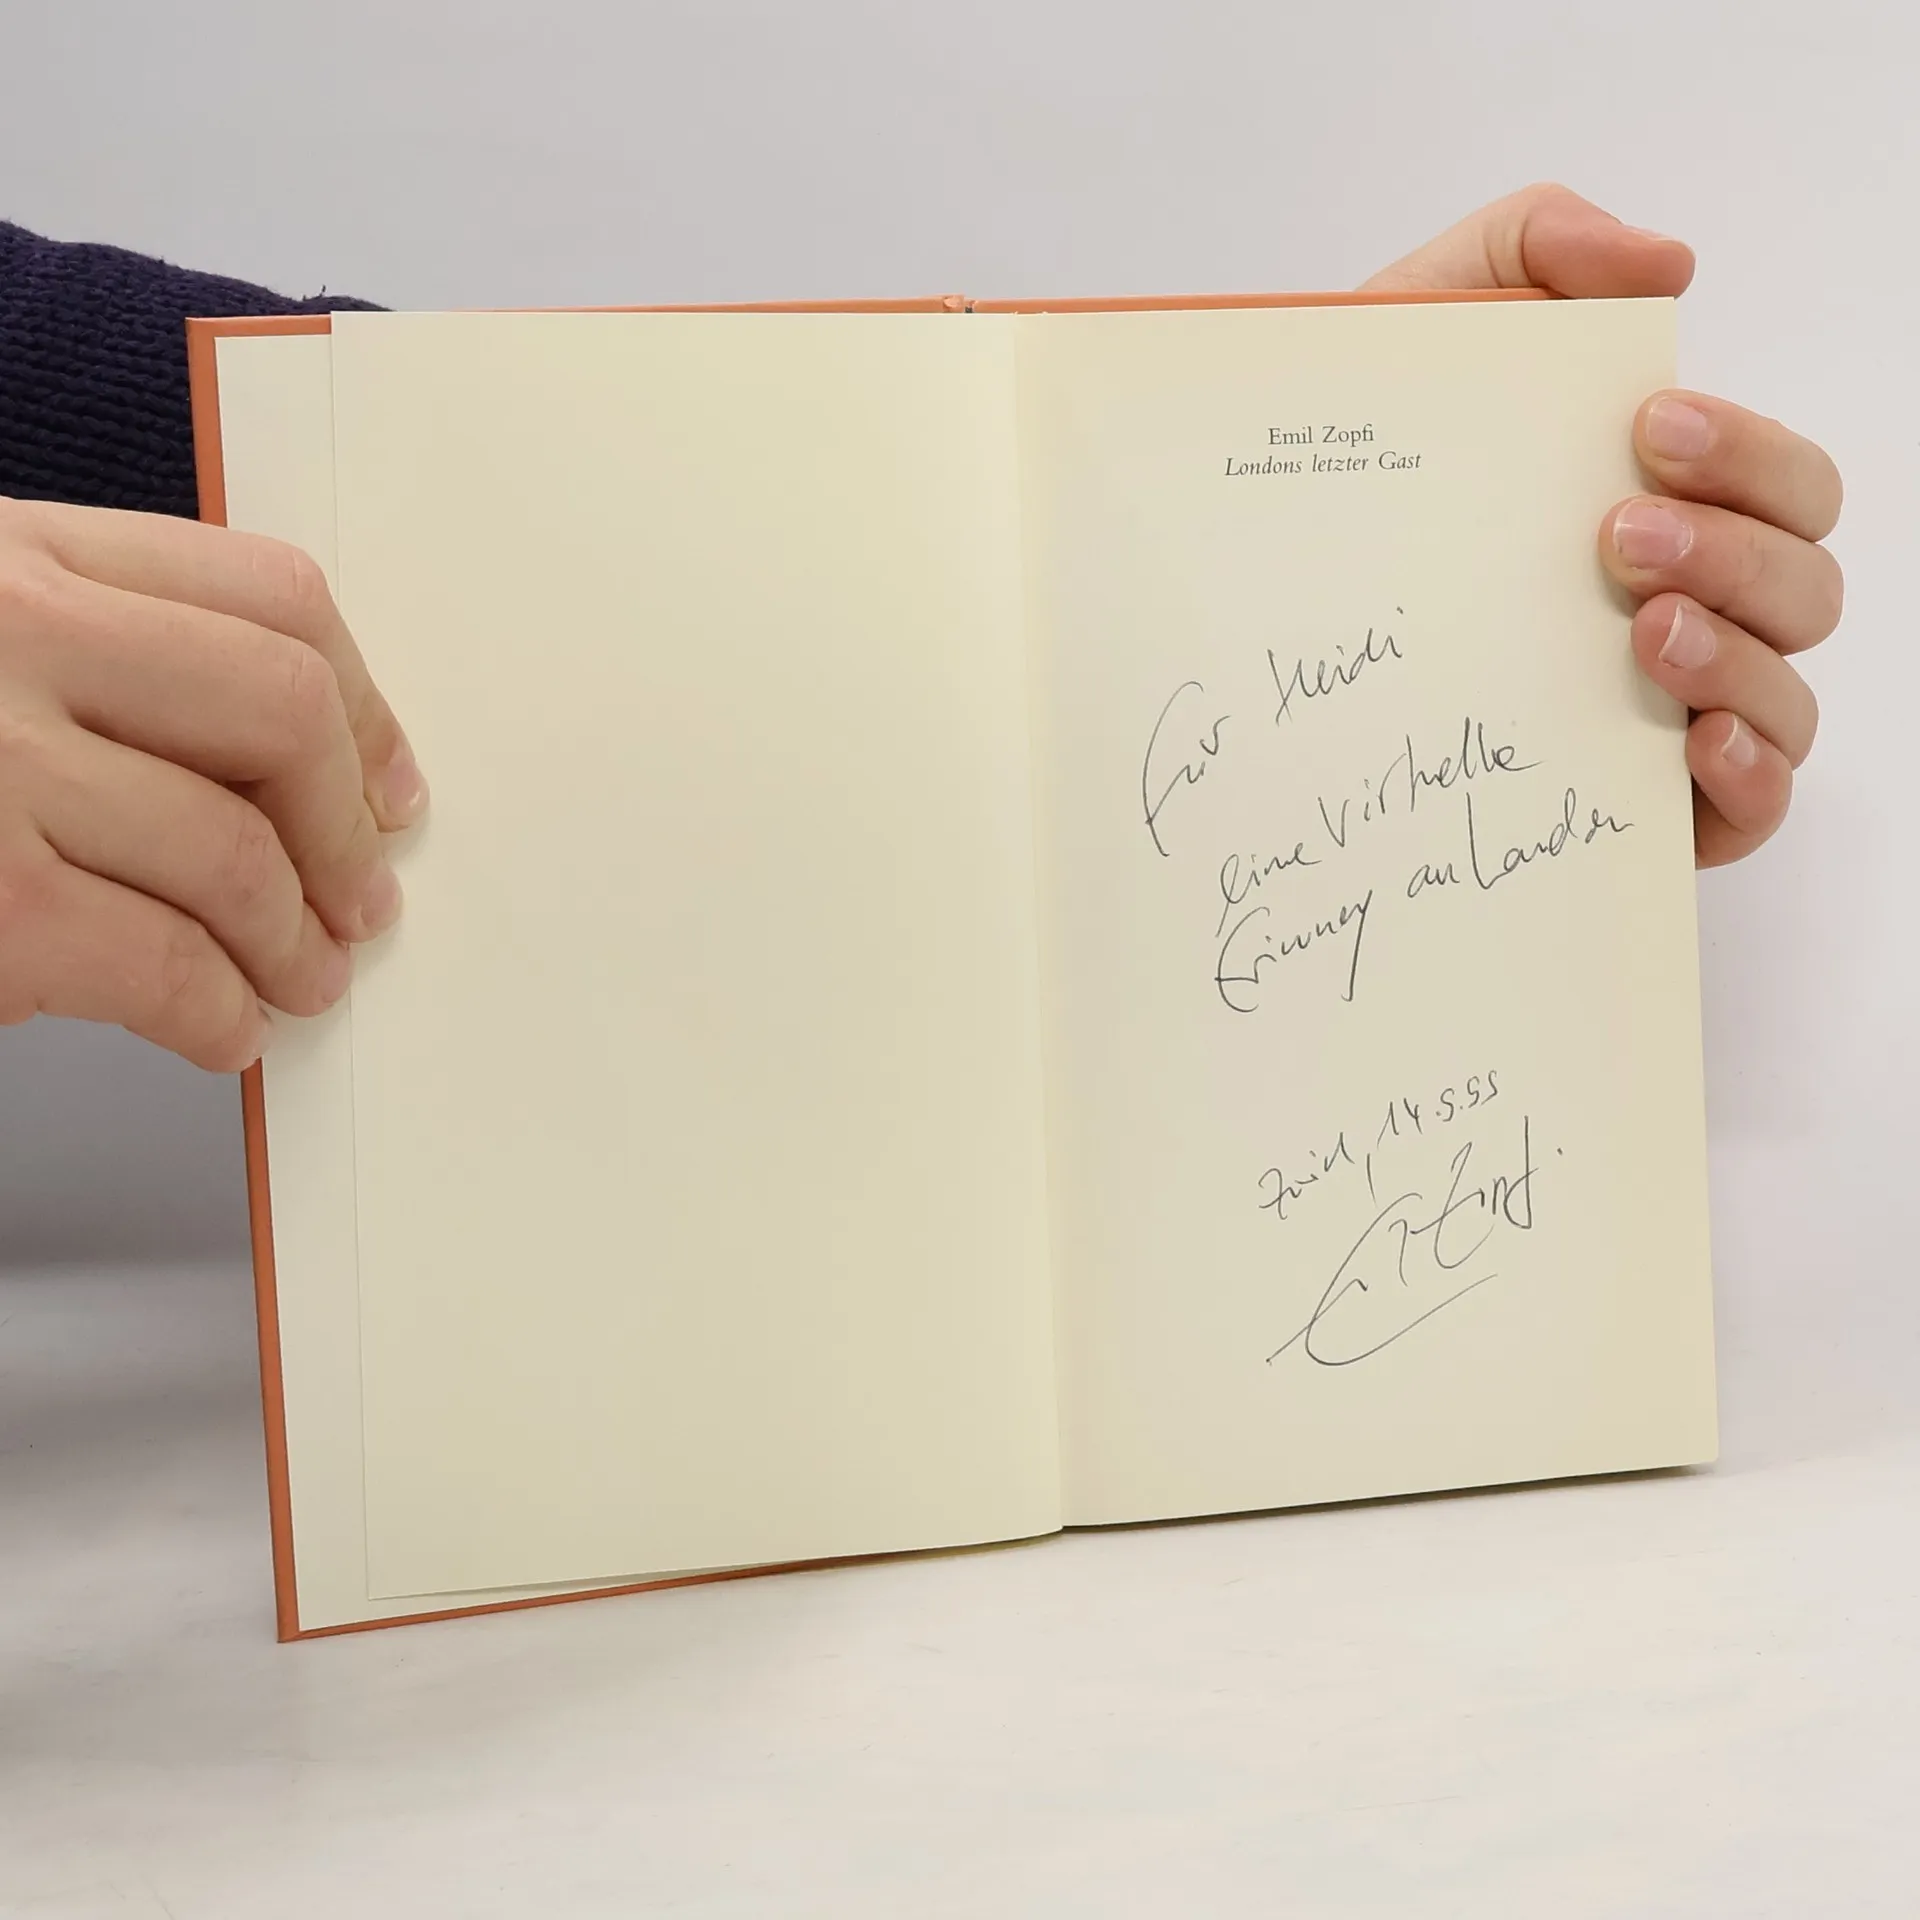 Emil Zopfi
Londons letzter Gast
Für Heidi
eine virtuelle
Erinnerg an London
Zürich, 14.5.99
E Zopfi